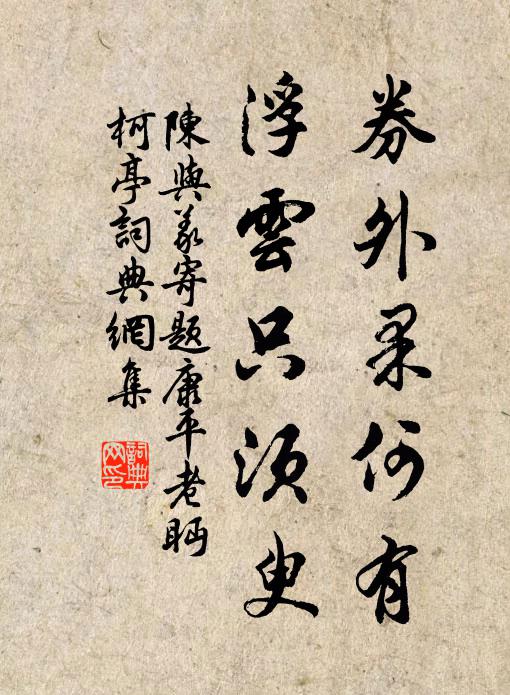 券外果何有
浮雲只須臾
陳與義寄題康平老眄
柯亭詞典網集
詞典
网印